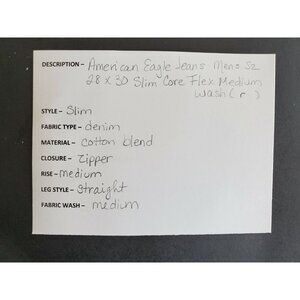 DESCRIPTION - American Eagle Jeans Mens Sz
28 x 30 Slim Core Flex Medium
Wash (r )
STYLE - Slim
FABRIC TYPE - denim
MATERIAL - cotton blend
CLOSURE - Zipper
RISE - medium
LEG STYLE - straight
FABRIC WASH - medium